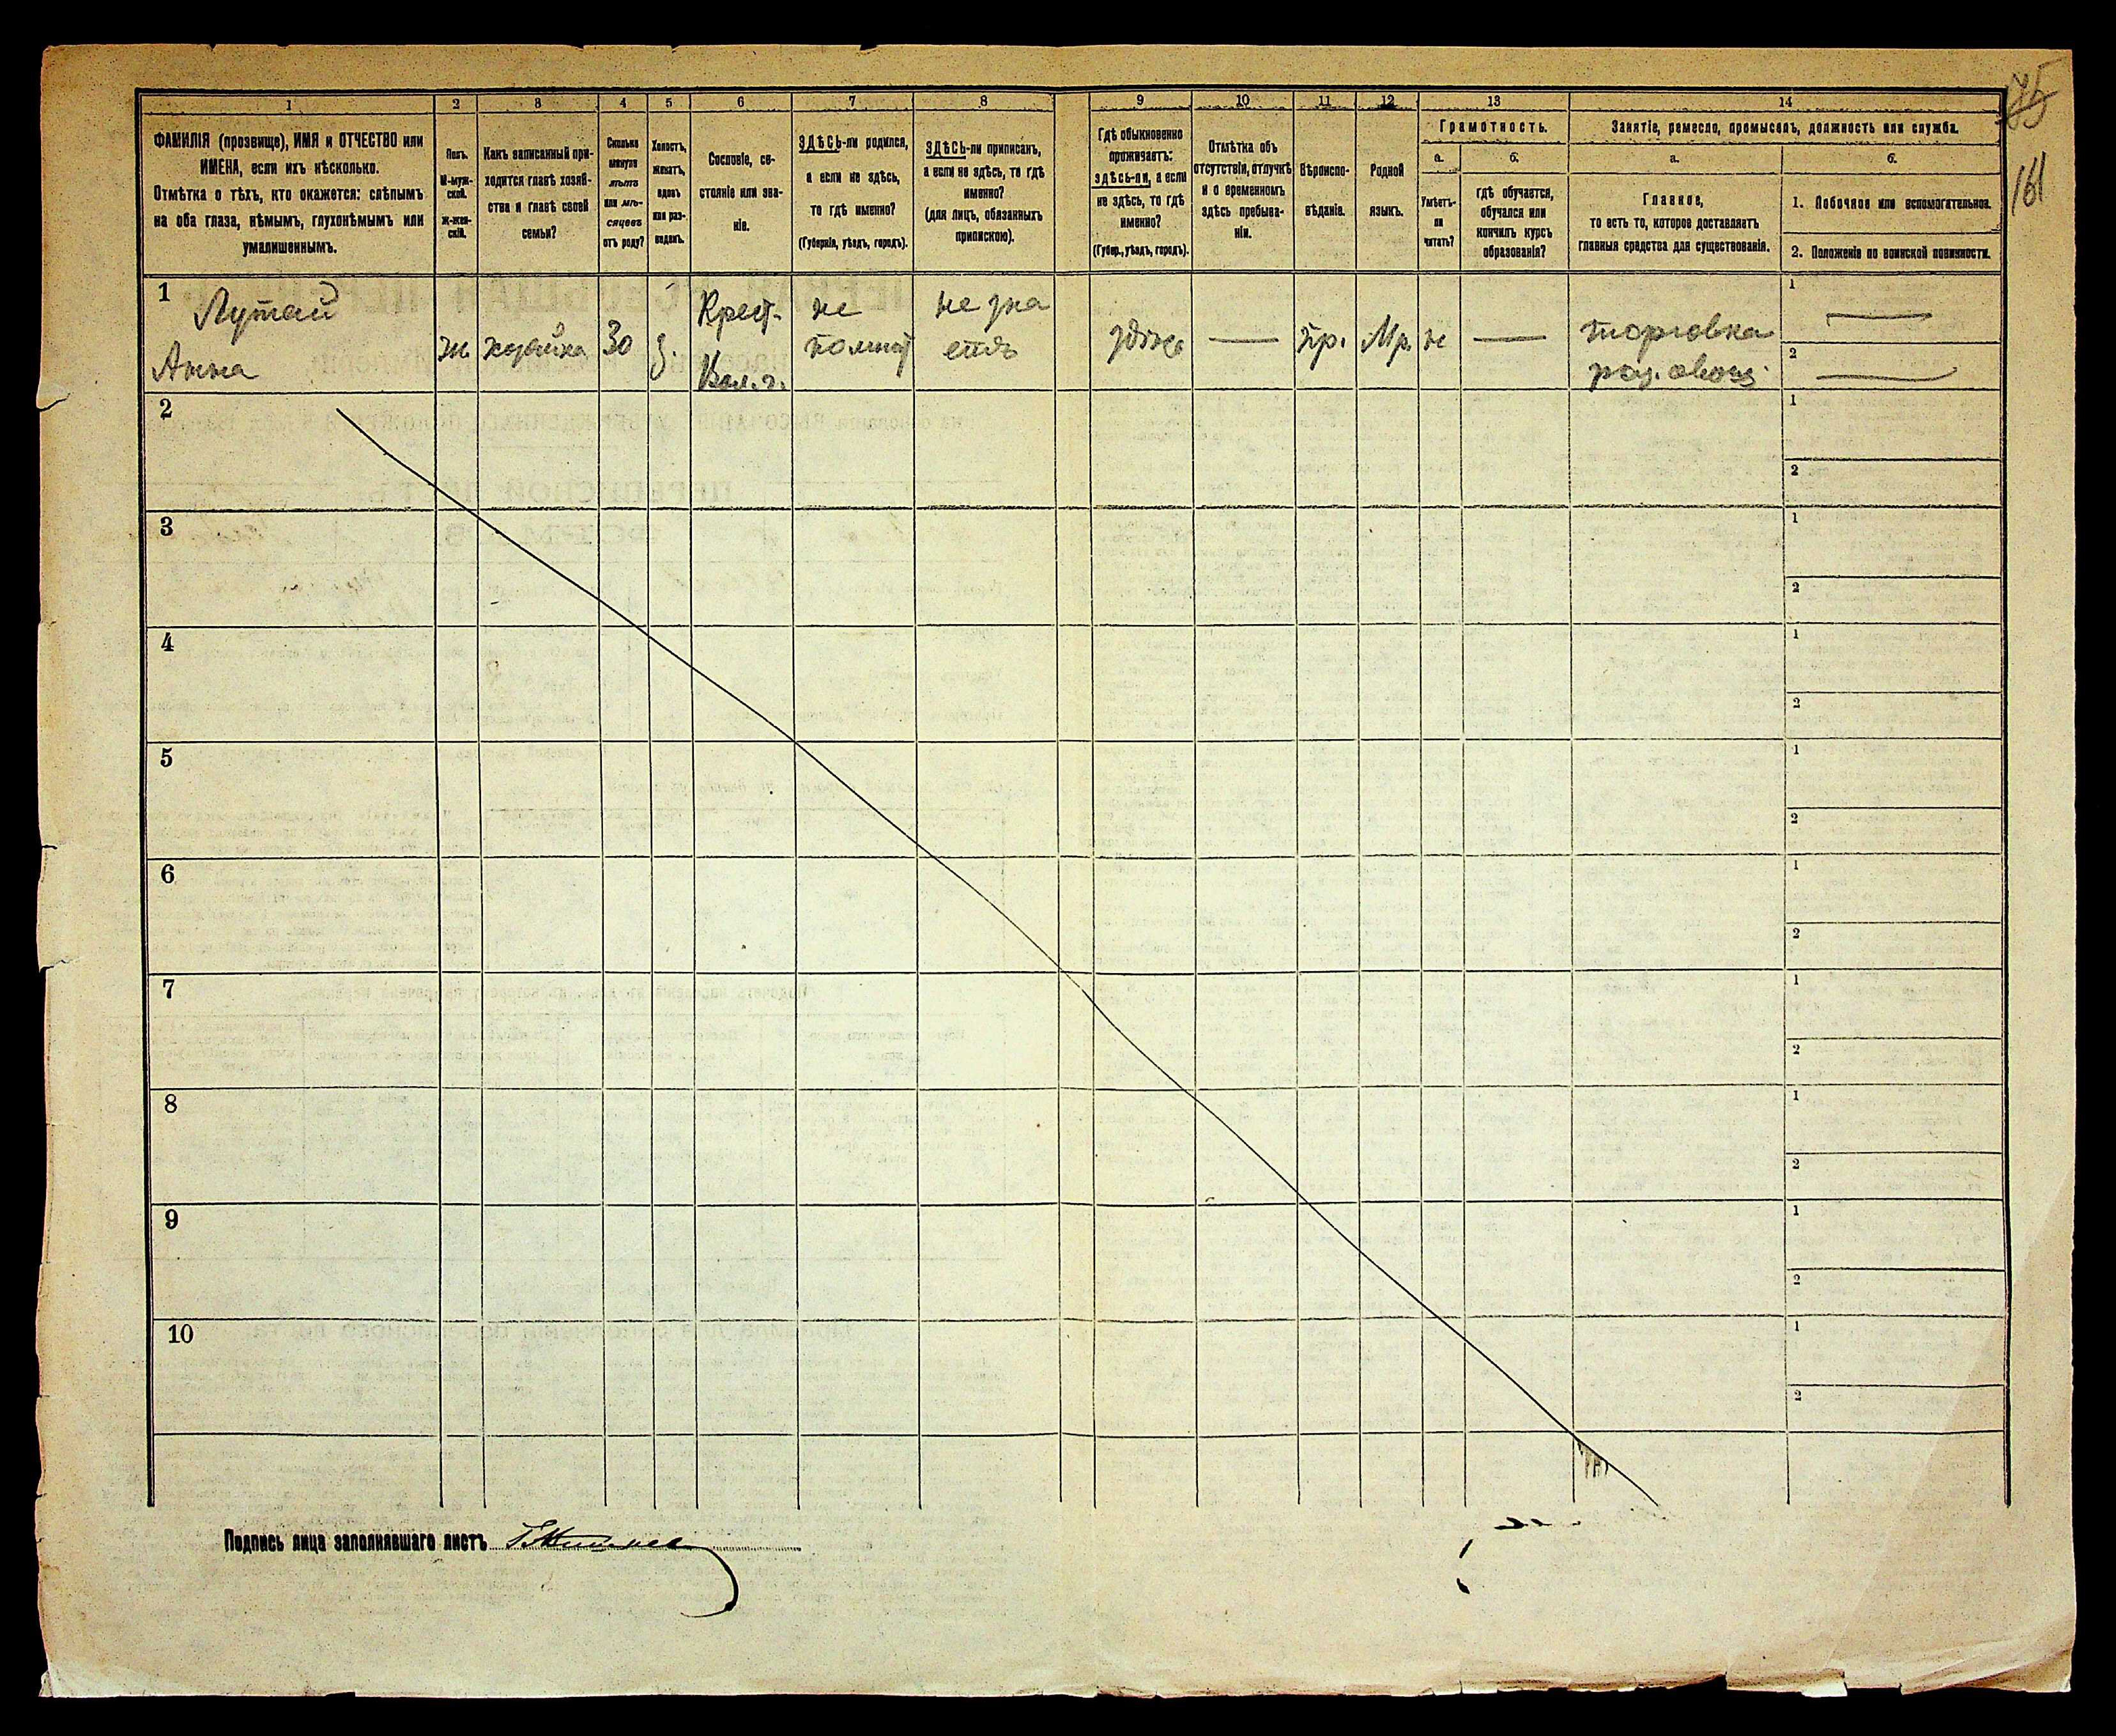 75
161
1 2 3 4 5 6 7 8 9 10 11 12 13 14
ФАМИЛІЯ (прозвище), ИМЯ и ОТЧЕСТВО или
ИМЕНА, если ихъ нѣсколько.
Отмѣтка о тѣхъ, кто окажется: слѣпымъ
на оба глаза, нѣмымъ, глухонѣмымъ или
умалишеннымъ.
Полъ.
М-муж-
ской.
Ж-жен-
скій.
Какъ записанный при-
ходится главѣ хозяй-
ства и главѣ своей
семьи?
Сколько
минуло
лѣтъ
или мѣ-
сяцевъ
отъ роду?
Холостъ,
женатъ,
вдовъ
или раз-
веденъ.
Сословіе, со-
стояніе или зва-
ніе.
ЗДѢСЬ-ли родился,
а если не здѣсь,
то гдѣ именно?
(Губернія, уѣздъ, городъ).
ЗДѢСЬ-ли приписанъ,
а если не здѣсь, то гдѣ
именно?
(для лицъ, обязанныхъ
припискою).
Гдѣ обыкновенно
проживаетъ:
здѣсь-ли, а если
не здѣсь, то гдѣ
именно?
(Губер., уѣздъ, городъ).
Отмѣтка объ
отсутствіи, отлучкѣ
и о временномъ
здѣсь пребыва-
ніи.
Вѣроиспо-
вѣданіе.
Родной
языкъ.
Грамотность.
а.
Умѣетъ-
ли
читать?
б.
гдѣ обучается,
обучался или
кончилъ курсъ
образованія?
Занятіе, ремесло, промыселъ, должность или служба.
а.
Главное,
то есть то, которое доставляетъ
главныя средства для существованія.
б.
1. Побочное или вспомогательное.
2. Положеніе по воинской повинности.
1
Лутай
Анна
ж
хозяйка
30
з.
Крест.
не
помнит
не зна
етъ
здѣсь
—
пр.
Мр.
не
—
торговка
раз. овощ.
1 —
2 —
2
1
2
3
1
2
4
1
2
5
1
2
6
1
2
7
1
2
8
1
2
9
1
2
10
1
2
Подпись лица заполнявшаго листъ